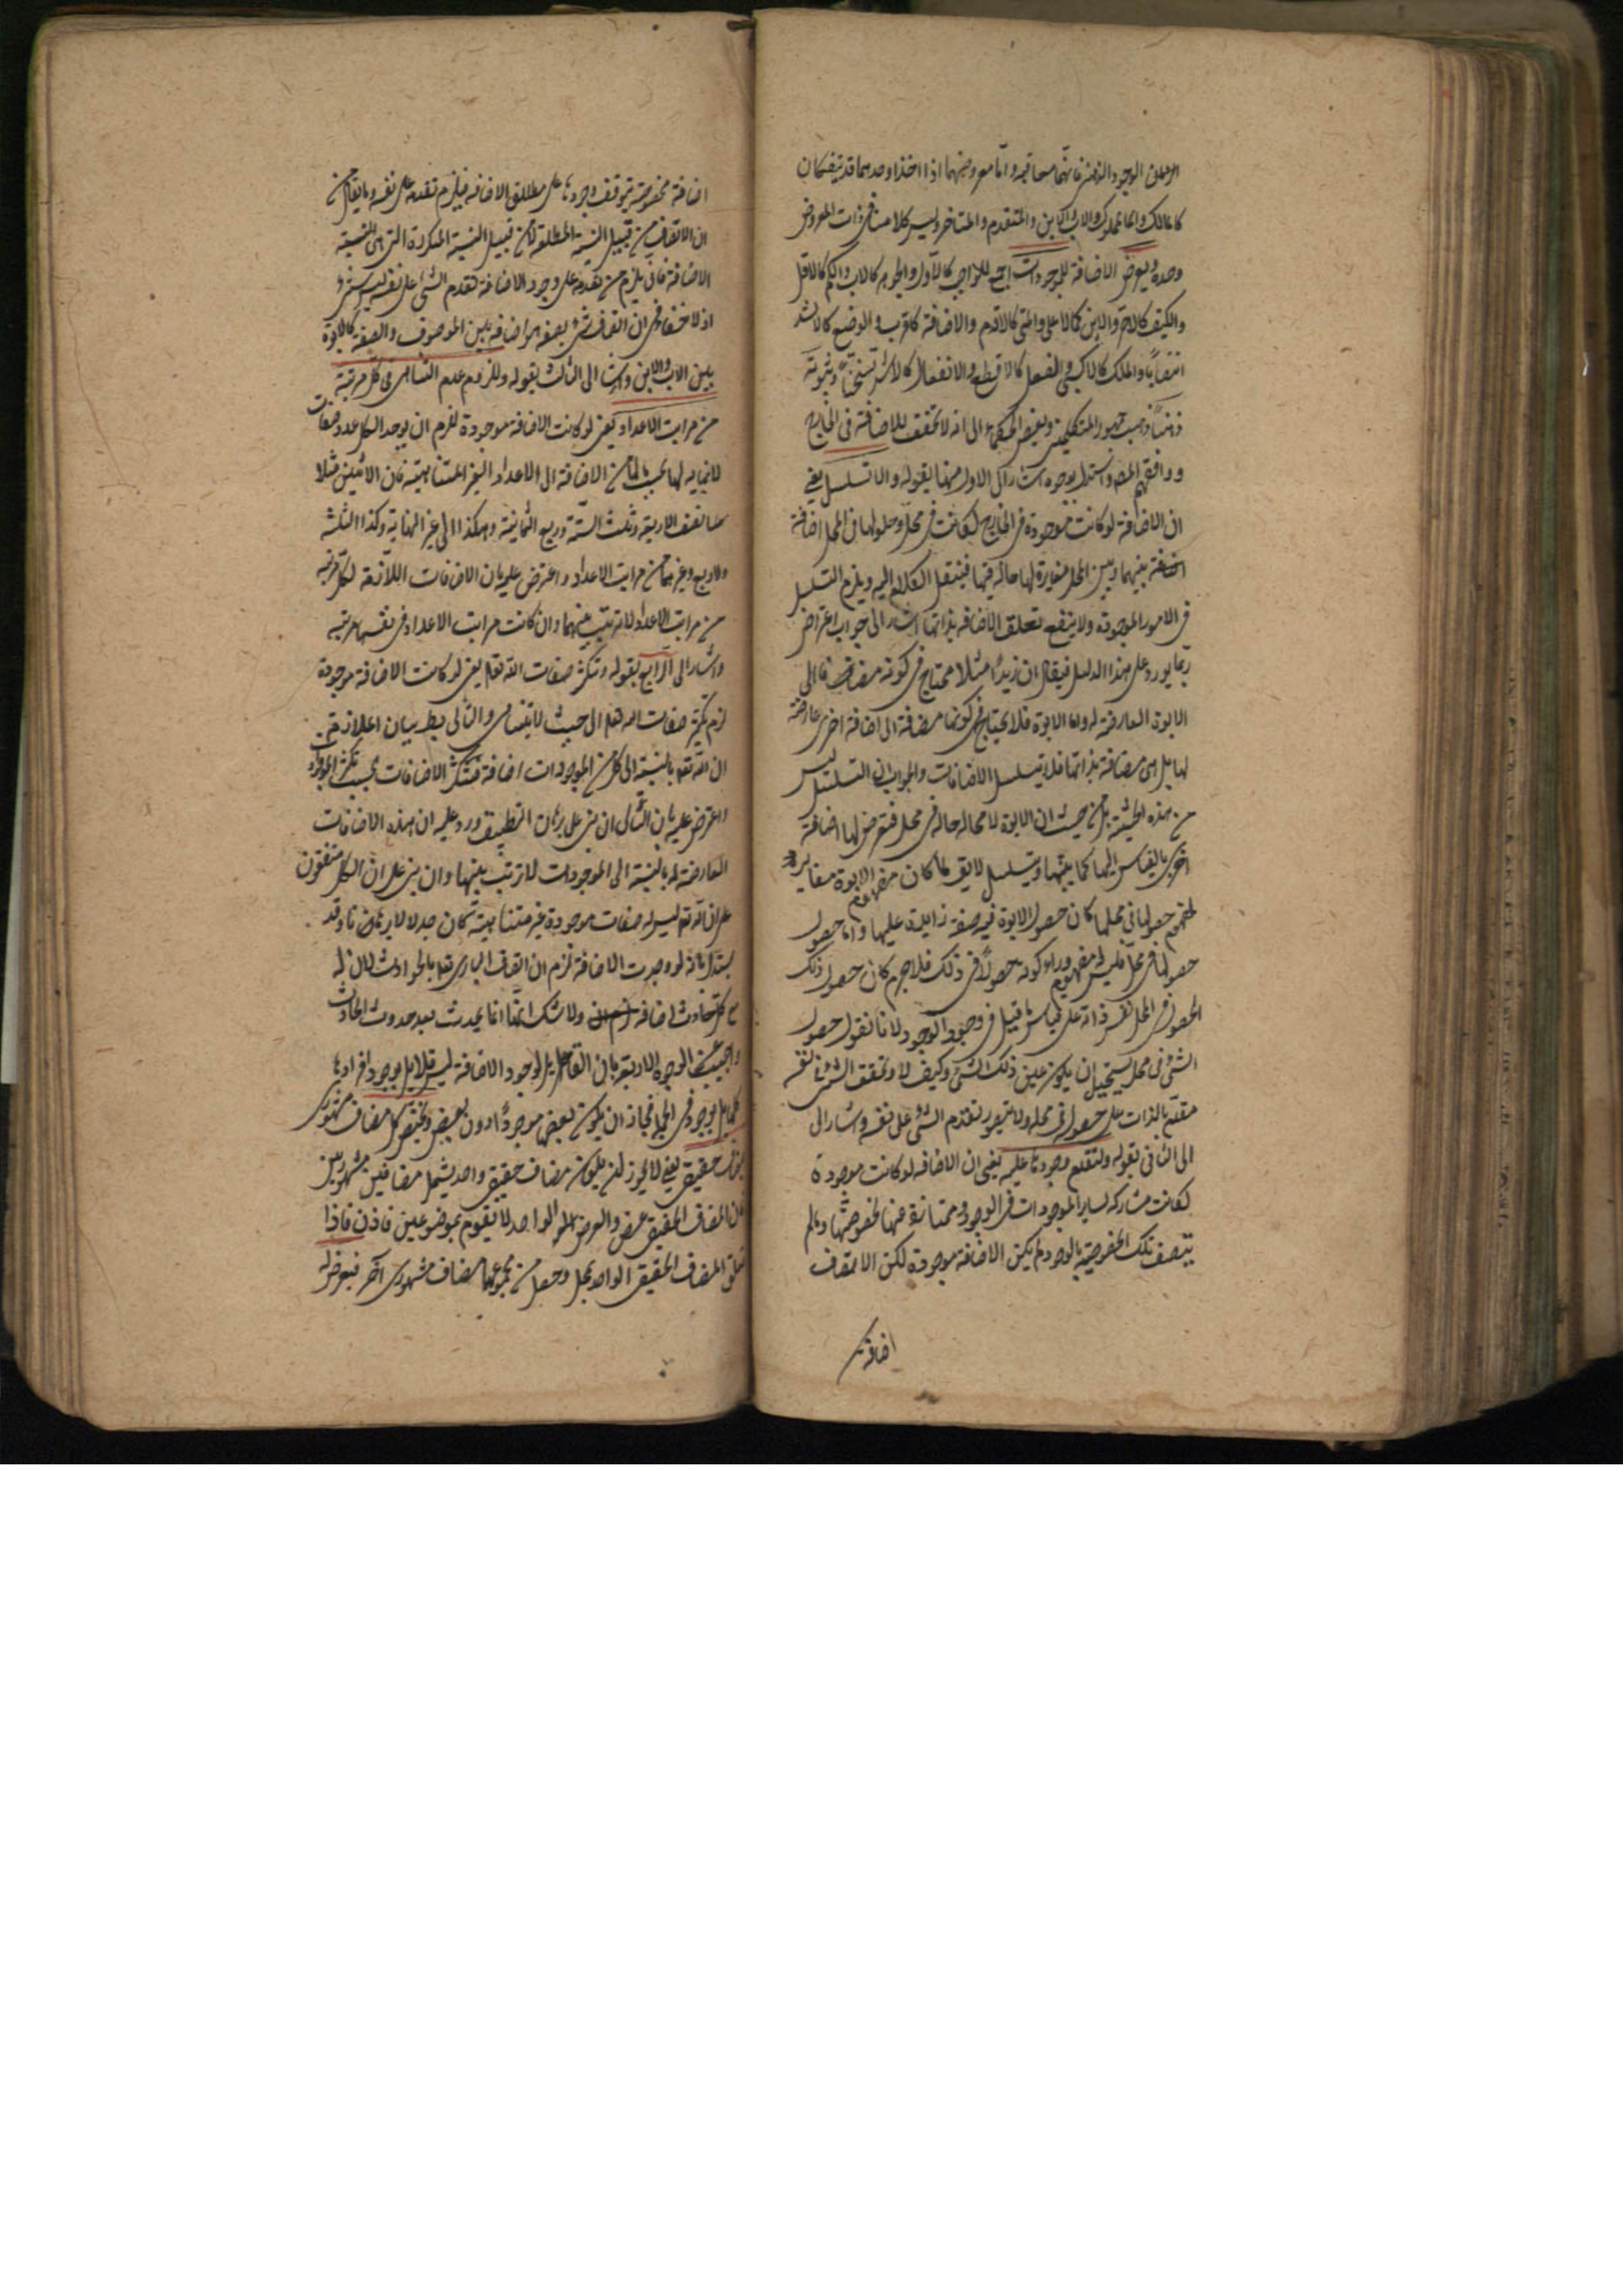 او فى الوجود الذهنى فانهما معا فيه واما معروضهما اذا اخذا وحدهما قد ينفكان
كالمالك والمملوك والاب والابن والمتقدم والمتاخر وليس كلامنا فى ذات المعروض
وحده ويعرض الاضافة للموجودات اجمع للواجب كالاول والجوهر كالاب والكم كالاقل
والكيف كالاحر والاين كالاعلى والمتى كالاقدم والاضافة كالاقرب والوضع كالاشد
انتصابا والملك كالاكسى والفعل كالاقطع والانفعال كالاشد تسخنا وثبوته
ذهنى ذهب جمهور المتكلمين وبعض الحكماء الى انه لا تحقق للاضافة فى الخارج
ووافقهم المص واستدل بوجوه اشار الى الاول منها بقوله والا تسلسل يعنى
ان الاضافة لو كانت موجودة فى الخارج لكانت فى محل وحلولها فى المحل اضافة
بينهما وبين المحل مغايرة لها حالة فيها فينقل الكلام اليه ويلزم التسلسل
فى الامور الموجودة ولا ينفع تعلق الاضافة بذاتها اشار الى جواب اعتراض
ربما يورد على هذا الدليل فيقال ان زيدا مثلا محتاج فى كونه مضافا الى
الابوة العارضة له واما الابوة فلا يحتاج فى كونها مضافة الى اضافة اخرى عارضة
لها بل هى مضافة بذاتها فلا يتسلسل الاضافات والجواب ان التسلسل ليس
من هذه الحيثية بل من حيث ان الابوة لا محالة حالة فى محل فتعرض لها اضافة
اخرى بالقياس اليها كما بينها ويتسلسل لا يقال لما كان مفهوم الابوة مغايرا
لمفهوم حصولها فى محلها كان حصول الابوة فيه صفة زايدة عليها واما حصول
حصولها فى محل فليس له مفهوم وراء كونه حصولا فى ذلك فلا جرم كان حصول ذلك
الحصول فى المحل نفس ذاته على قياس ما قيل فى وجود الوجود لانا نقول حصول
الشئ فى محل يستحيل ان يكون عين ذلك الشئ وكيف لا وتحقق الشئ فى نفسه
مقدم بالذات على حصوله فى محله ولا يتصور تقدم الشئ على نفسه واشار الى
الى الثانى بقوله ولتقدم وجودها عليه يعنى ان الاضافة لو كانت موجودة
لكانت مشاركة لساير الموجودات فى الوجود وممتازة عنها بخصوصيتها ومالم
يتصف تلك الخصوصية بالوجود لم يكن الاضافة موجودة لكن الاتصاف
اضافة
اضافة مخصوصة يتوقف وجودها على مطلق الاضافة فيلزم تقدمه على نفسه وما يقال من
ان الاتصاف من قبيل النسبة المطلقة لا من قبيل النسبة المتكررة التى هى النسبية
الاضافة فانى يلزم من تقدمه على وجود الاضافة تقدم الشئ على نفسه ليس بشئ
اذ لا خفاء فى ان اتصاف شئ بصفة هو اضافة بين الموصوف والصفة كالابوة
بين الاب والابن واشار الى الثالث بقوله وللزوم عدم التناهى فى كل مرتبة
من مراتب الاعداد يعنى لو كانت الاضافة موجودة للزم ان يوجد لكل عدد صفات
لا نهاية لها بحسب ماله من الاضافة الى الاعداد الغير المتناهية فان الاثنين مثلا
نصف الاربعة وثلث الستة وربع الثمانية وهكذا الى غير النهاية وكذا الثلثة
والاربع وغيرهما من مراتب الاعداد واعترض عليه بان الاضافات اللازمة لكل مرتبة
من مراتب الاعداد لا ترتب بينها وان كانت مراتب الاعداد فى نفسها مرتبة
واشار الى الرابع بقوله وتكثر صفات الله تعالى يعنى لو كانت الاضافة موجودة
لزم تكثر صفات الله تعالى الى حيث لا يتناهى والتالى بطل بيان الملازمة
ان الله تعالى بالنسبة الى كل من الموجودات اضافة فتتكثر الاضافات بحسب تكثر الموجودات
واعترض عليه بان التالى ان بنى على برهان التطبيق ورد عليه ان هذه الاضافات
العارضة له بالنسبة الى الموجودات لا ترتب بينها وان بنى على ان الكل متفقون
على ان الله تعالى ليس له صفات موجودة غير متناهية كان جدلا لا برهانا وقد
يستدل بانه لو وجدت الاضافة لزم ان اتصاف البارى تعالى بالحوادث لان له
مع كل حادث اضافة ولا شك انها انما يحدث بعد حدوث الحادث
واجيب عن الوجوه الاربعة بان القائل بوجود الاضافة ليس قائلا بوجود افرادها
كلها بل بوجود فى الجملة فجاز ان يكون بعضها موجودا دون بعض ويختص كل مضاف مشهورى
بمضاف حقيقى يعنى لا يجوز ان يكون مضاف حقيقى واحد يشمل مضافين مشهوريين
لان المضاف الحقيقى عرض والعرض الواحد لا يقوم بموضوعين فاذن فاذا
تعلق المضاف الحقيقى الواحد بمحل وحصل من مجموعهما مضاف مشهورى اخر فيعرض له